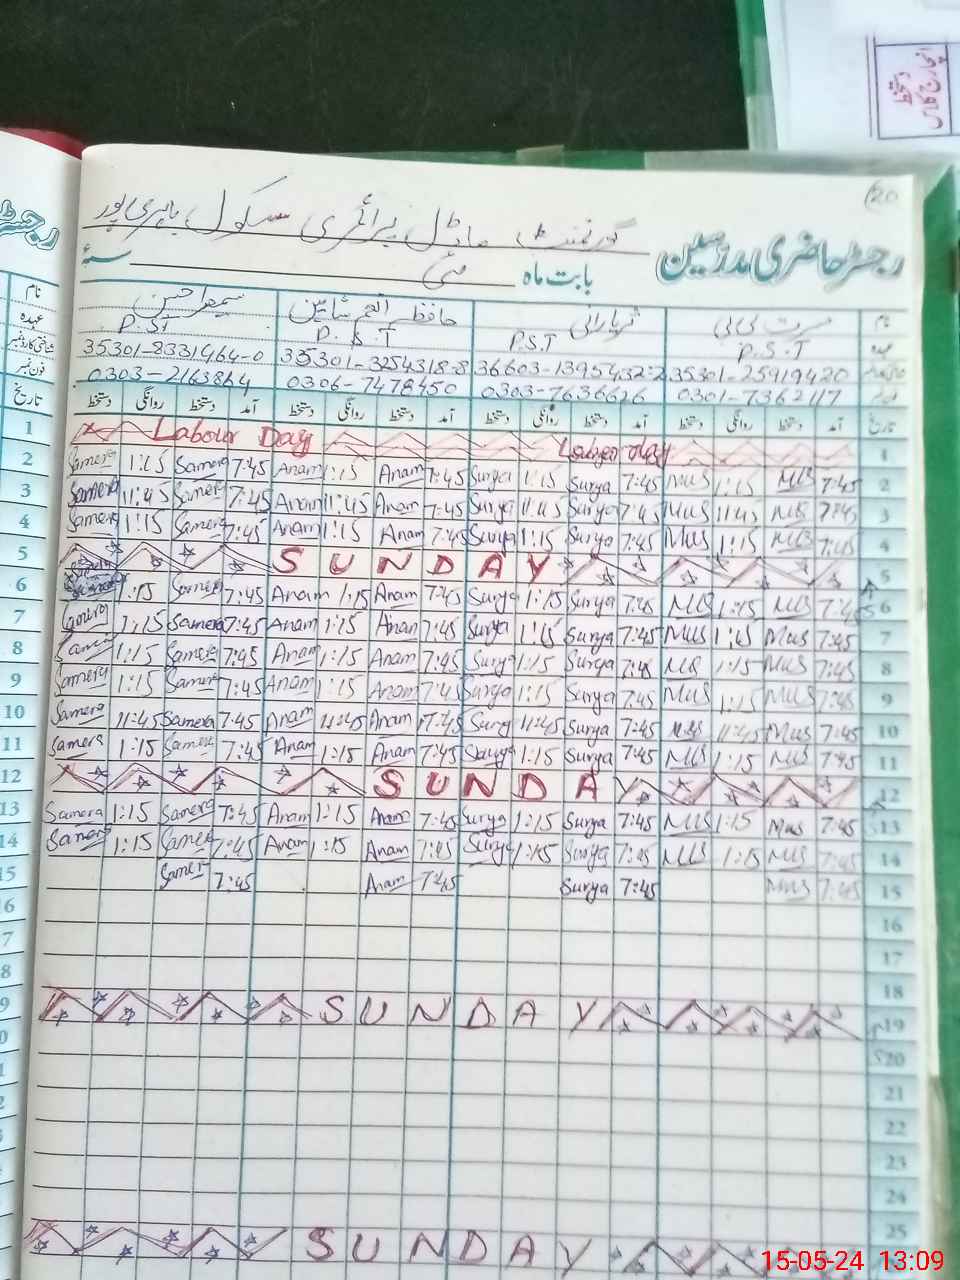 دستخط
انچارج کلاس
20
گورنمنٹ ماڈل پرائمری سکول باہری پور
رجسٹر حاضری مدرسین
بابت ماہ مئی سنہء
نام مسرت بی بی ثریا رانی حافظہ انعم شاہین سمیرا حسن
عہدہ P.S.T P.S.T P.S.T P.ST
35301-8331464-0 35301-3254318-8 36603-1395432-2 35301-25919420
0303-2163864 0306-7478450 0303-7636626 0301-7362117
تاریخ آمد دستخط روانگی دستخط آمد دستخط روانگی دستخط آمد دستخط روانگی دستخط آمد دستخط روانگی دستخط
1 Labour Day Labour day 1
2 Samera 1:15 Samera 7:45 Anam 1:15 Anam 7:45 Surya 1:15 Surya 7:45 Mus 1:15 Mus 7:45 2
3 Samera 11:45 Samera 7:45 Anam 11:45 Anam 7:45 Surya 11:45 Surya 7:45 Mus 11:45 Mus 7:45 3
4 Samera 1:15 Samera 7:45 Anam 1:15 Anam 7:45 Surya 1:15 Surya 7:45 Mus 1:15 Mus 7:45 4
5 SUNDAY 5
6 1:15 Samera 7:45 Anam 1:15 Anam 7:45 Surya 1:15 Surya 7:45 Mus 1:15 Mus 7:45 6
7 Samera 1:15 Samera 7:45 Anam 1:15 Anam 7:45 Surya 1:15 Surya 7:45 Mus 1:15 Mus 7:45 7
8 Samera 1:15 Samera 7:45 Anam 1:15 Anam 7:45 Surya 1:15 Surya 7:45 Mus 1:15 Mus 7:45 8
9 Samera 1:15 Samera 7:45 Anam 1:15 Anam 7:45 Surya 1:15 Surya 7:45 Mus 1:15 Mus 7:45 9
10 Samera 11:45 Samera 7:45 Anam 11:45 Anam 7:45 Surya 11:45 Surya 7:45 Mus 11:45 Mus 7:45 10
11 Samera 1:15 Samera 7:45 Anam 1:15 Anam 7:45 Surya 1:15 Surya 7:45 Mus 1:15 Mus 7:45 11
12 SUNDAY 12
13 Samera 1:15 Samera 7:45 Anam 1:15 Anam 7:45 Surya 1:15 Surya 7:45 Mus 1:15 Mus 7:45 13
14 Samera 1:15 Samera 7:45 Anam 1:15 Anam 7:45 Surya 1:15 Surya 7:45 Mus 1:15 Mus 7:45 14
15 Samer 7:45 Anam 7:45 Surya 7:45 Mus 7:45 15
16
17
18
SUNDAY 19
20
21
22
23
24
SUNDAY 25
15-05-24 13:09